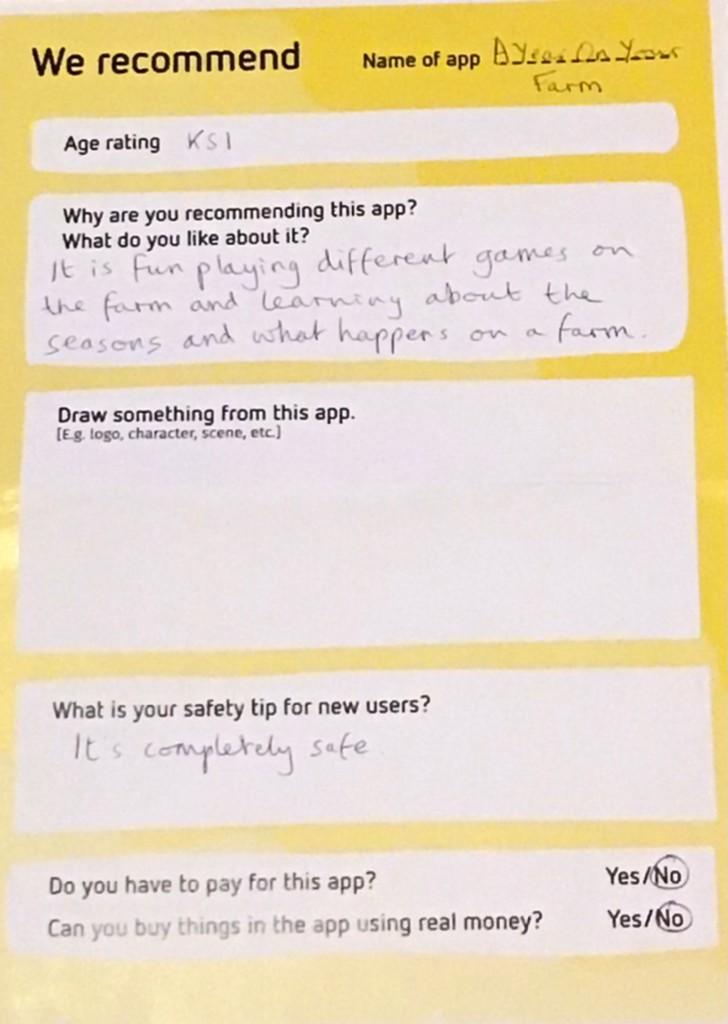 We recommend
Name of app A Year On Your
Farm
Age rating KS1
Why are you recommending this app?
What do you like about it?
It is fun playing different games on
the farm and learning about the
seasons and what happens on a farm.
Draw something from this app.
[E.g. logo, character, scene, etc.]
What is your safety tip for new users?
It's completely safe
Do you have to pay for this app? Yes/No
Can you buy things in the app using real money? Yes/No